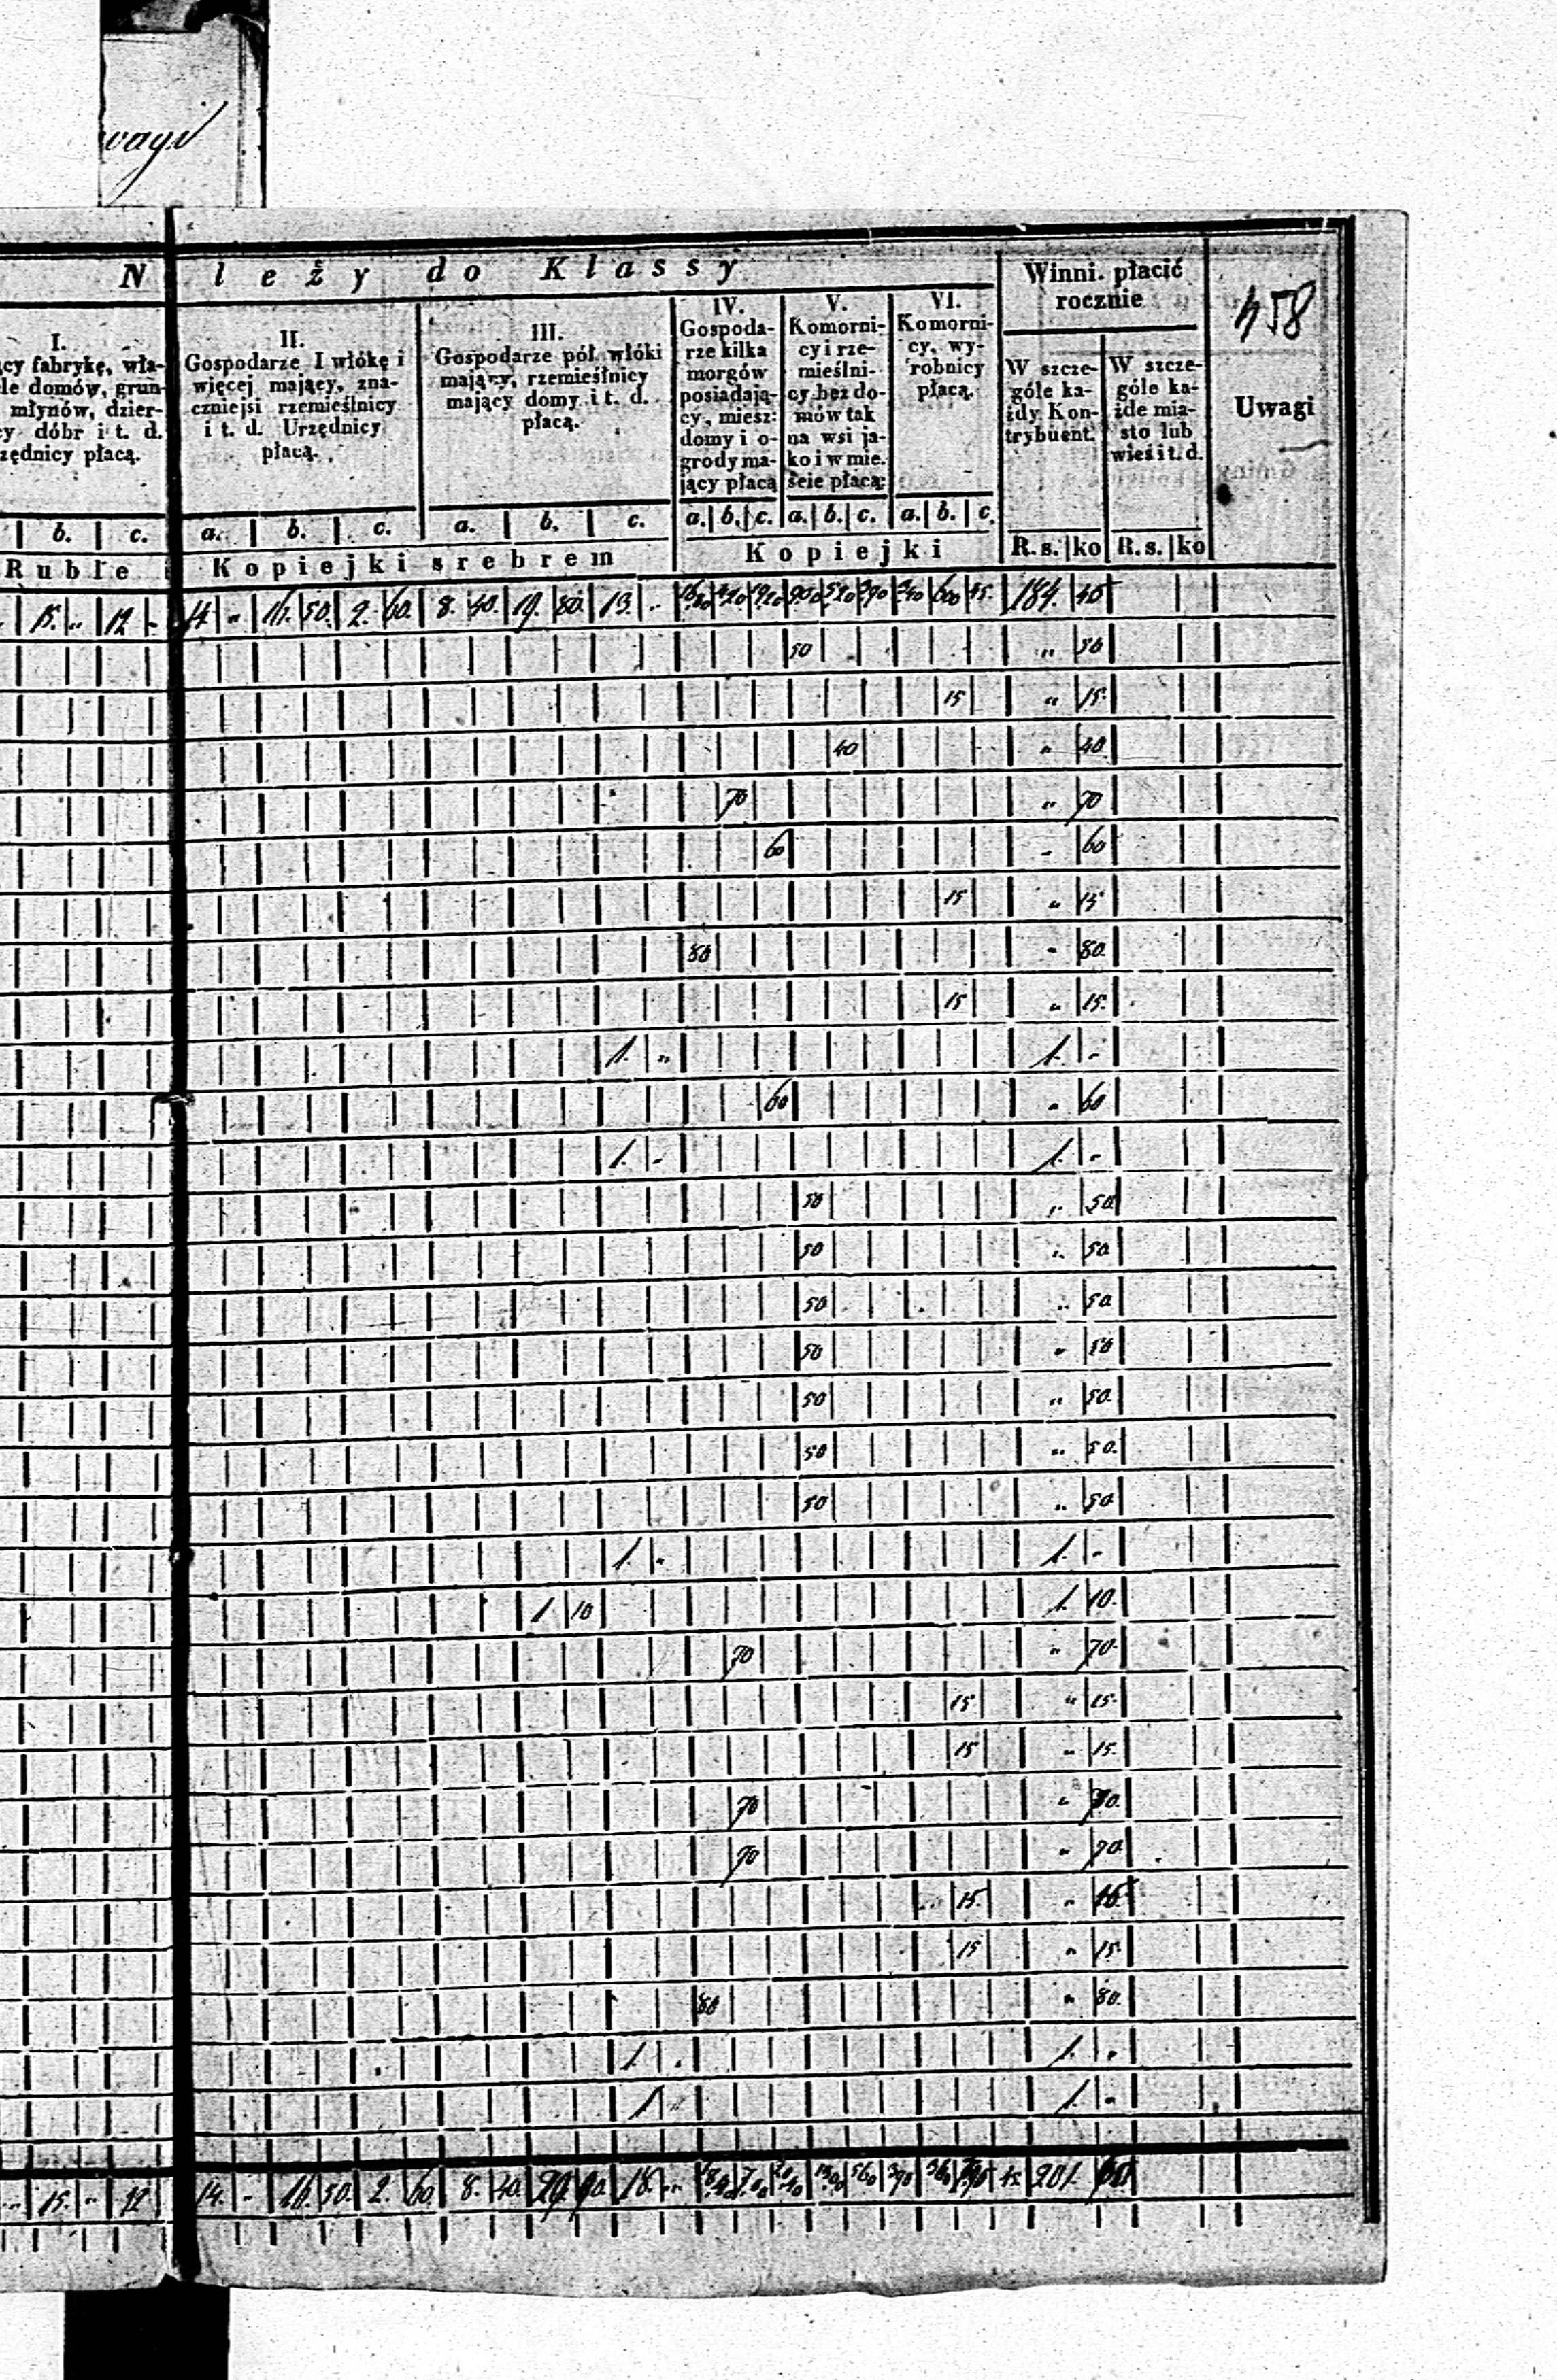 wagi
N leży do Klassy
Winni. płacić
rocznie
458
I.
cy fabrykę, wła-
le domów, grun-
młynów, dzier-
cy dóbr i t. d.
zędnicy płacą.
II.
Gospodarze I włókę i
więcej mający, zna-
czniejsi rzemieślnicy
i t. d. Urzędnicy
płacą.
III.
Gospodarze pół włóki
mający, rzemieślnicy
mający domy i t. d.
płacą.
IV.
Gospoda-
rze kilka
morgów
posiadają-
cy, miesz:
domy i o-
grody ma-
jący płacą
V.
Komorni-
cy i rze-
mieślni-
cy bez do-
mów tak
na wsi ja-
ko i w mie.
ście płacą:
VI.
Komorni-
cy, wy-
robnicy
płacą.
W szcze-
góle ka-
żdy Kon-
trybuent.
W szcze-
góle ka-
żde mia-
sto lub
wieś i t. d.
Uwagi
b. c. a. b. c. a. b. c. a. b. c. a. b. c. a. b. c.
Ruble Kopiejki srebrem Kopiejki R. s. ko R. s. ko
15. " 12 - 14 " 16. 50. 2. 60. 8. 40. 19. 80. 13. " 184. 40
50 " 50
15 " 15.
40 " 40
70 " 70
60 - 60
15 " 15
80 " 80
15 " 15.
1. " 1. -
60 " 60
1. - 1. -
50 " 50
50 " 50
50 " 50
50 " 50
50 " 50.
50 " 50.
50 " 50
1. - 1. -
1 10 1. 10.
70 " 70.
15 " 15.
15 " 15.
70 " 70.
70 " 70
15. " 15
15 " 15.
80 " 80.
1. - 1. -
1 " 1. -
" 15. " 12 14. - 16. 50. 2. 60. 8. 40. 20. 90. 18. " 201.